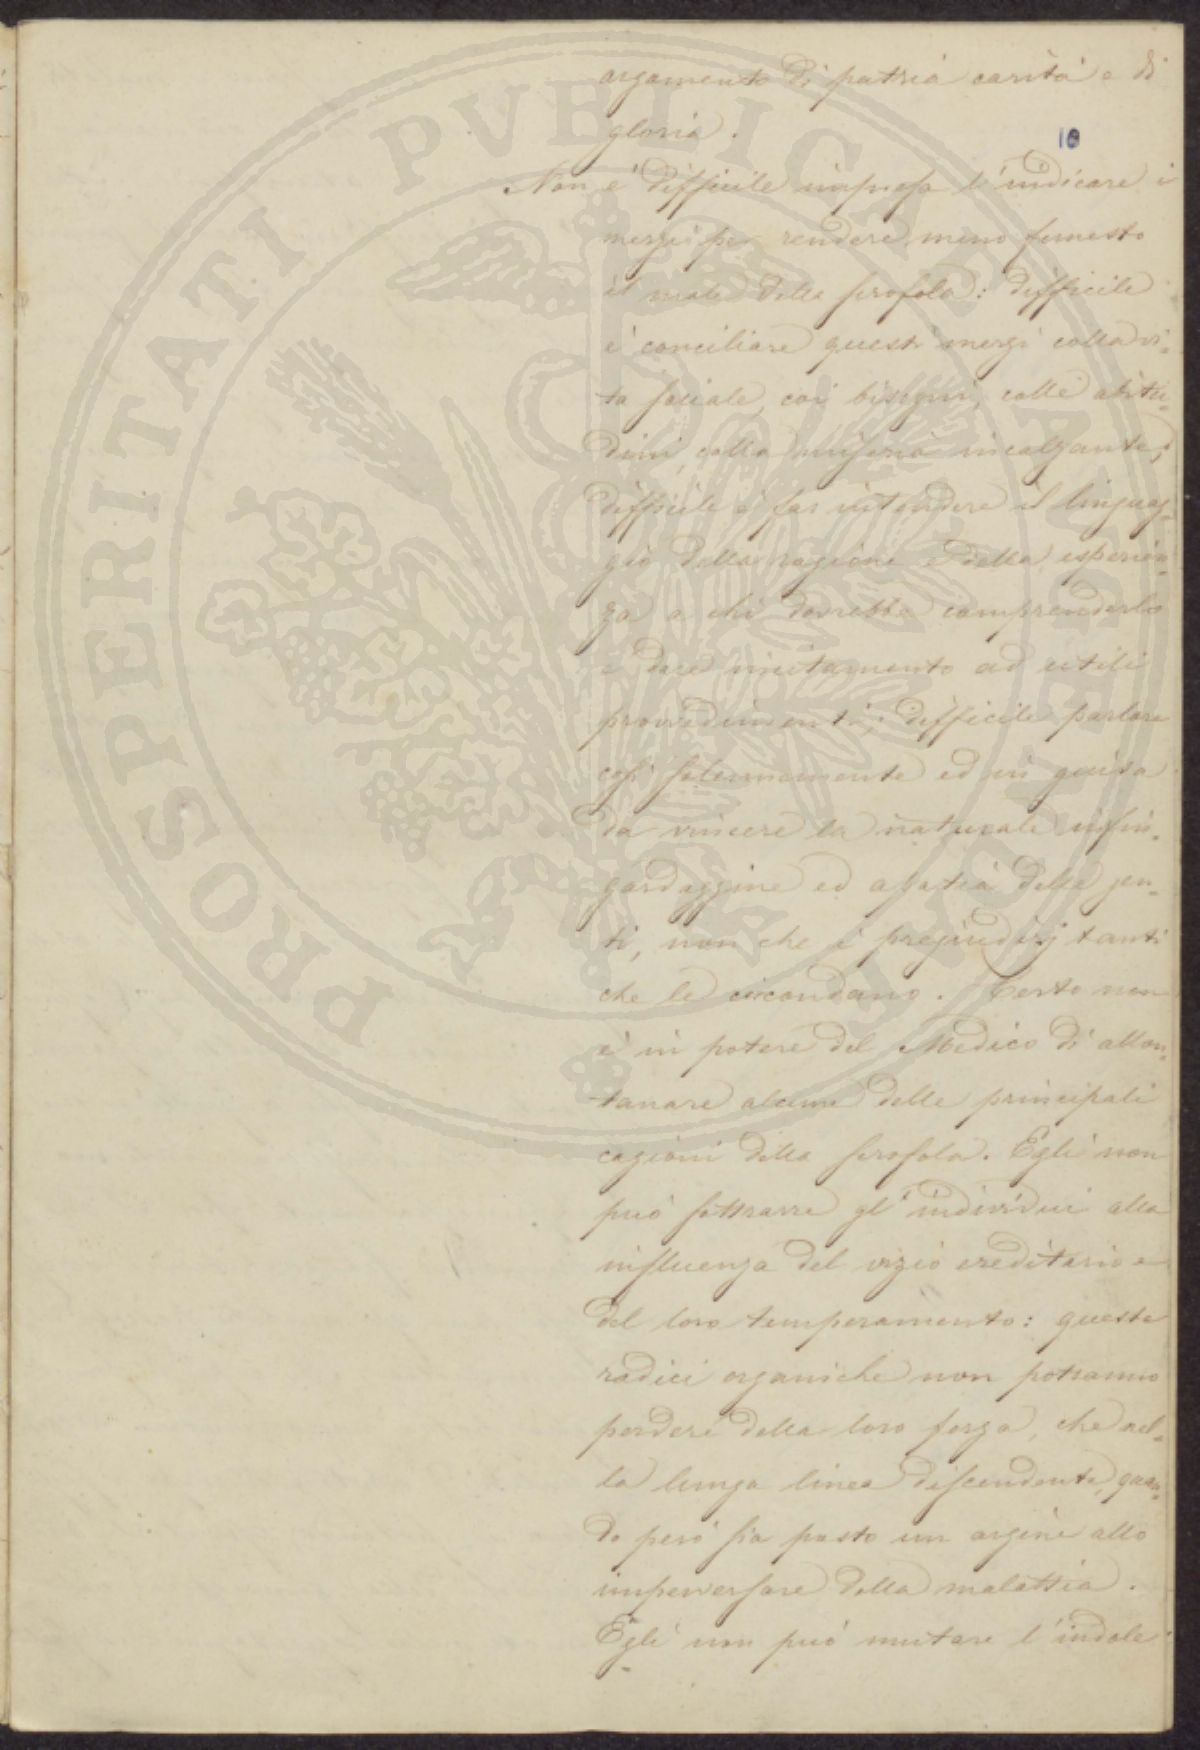 argomento di patria carità e di
gloria.
10
Non è difficile impresa l'indicare i
mezzi per rendere meno funesto
il male della scrofola: difficile
è conciliare questi mezzi colla vi-
ta sociale, coi bisogni, colle abitu-
dini, colla miseria incalzante;
difficile è far intendere il linguag-
gio della ragione e della esperien-
za a chi dovrebbe comprenderlo
e dare incitamento ad utili
provvedimenti; difficile parlare
così solennemente ed in guisa
da vincere la naturale infin-
gardaggine ed apatia delle gen-
ti, non che i pregiudizj tanti
che le circondano. Certo non
è in potere del Medico di allon-
tanare alcune delle principali
cagioni della scrofola. Egli non
può sottrarre gl'individui alla
influenza del vizio ereditario e
del loro temperamento: queste
radici organiche non potranno
perdere della loro forza, che nel-
la lunga linea discendente, quan-
do però sia posto un argine allo
imperversare della malattia.
Egli non può mutare l'indole
PROSPERITATI PVBLICAE AVGENDAE